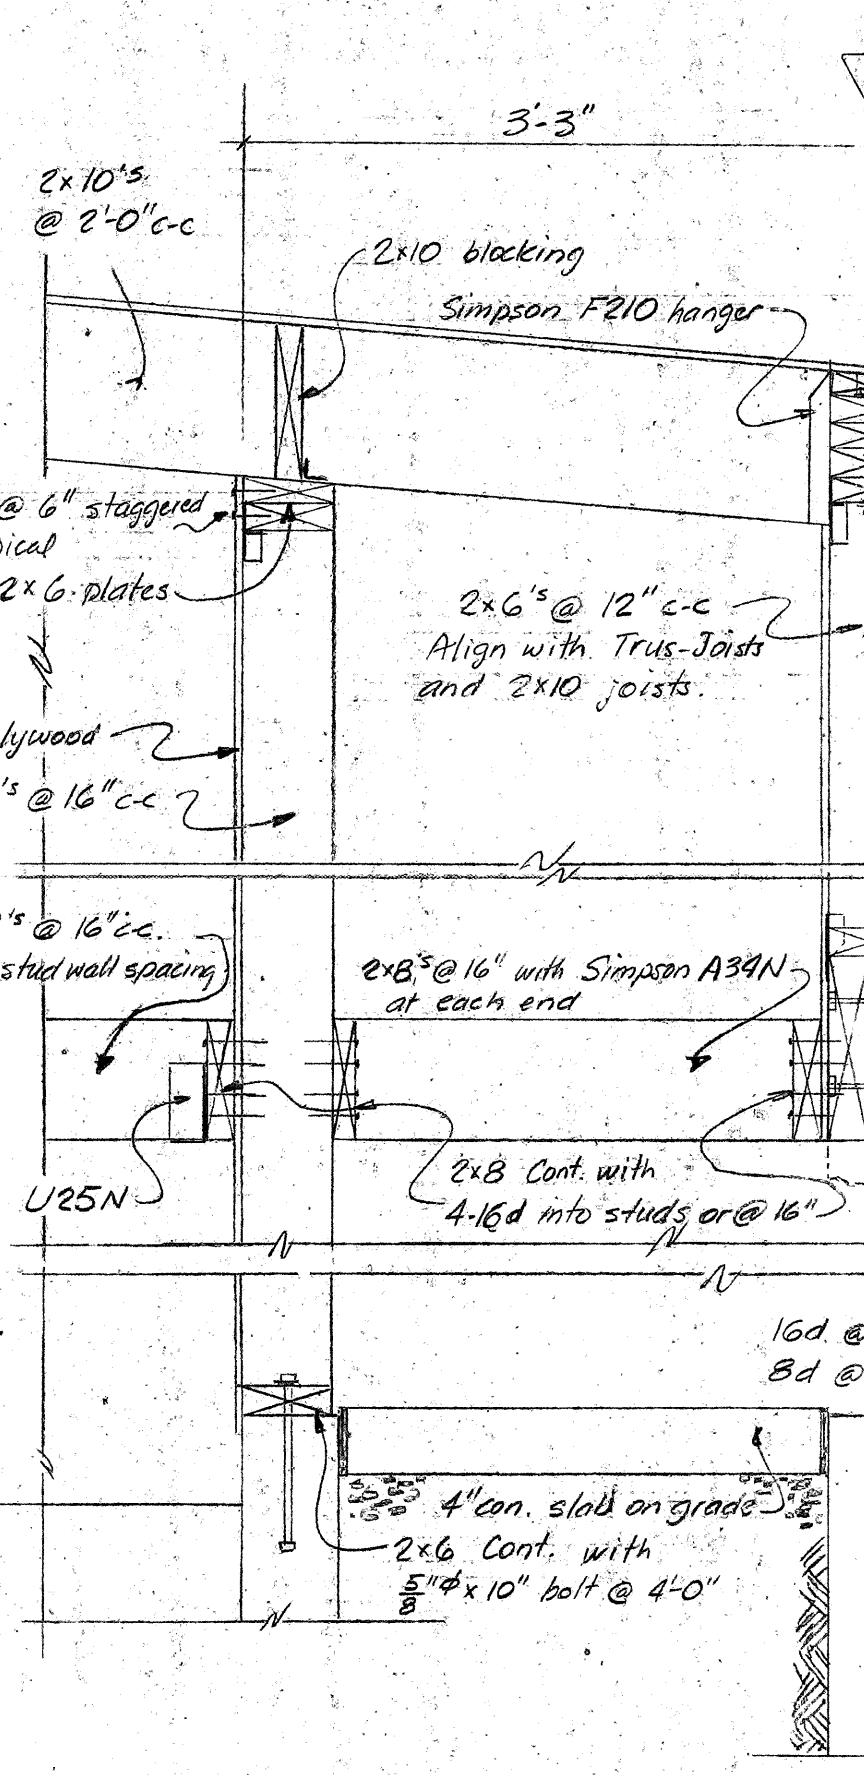 3'-3"
2x10's
@ 2'-0" c-c
2x10 blocking
Simpson F210 hanger
@ 6" staggered
ical
2x6 plates
2x6's @ 12" c-c
Align with Trus-Joists
and 2x10 joists.
lywood
's @ 16" c-c
's @ 16" c-c.
stud wall spacing
2x8's @ 16" with Simpson A34N
at each end
U25N
2x8 Cont. with
4-16d into studs or @ 16"
16d @
8d @
4" con. slab on grade
2x6 Cont. with
5/8"ϕ x 10" bolt @ 4'-0"